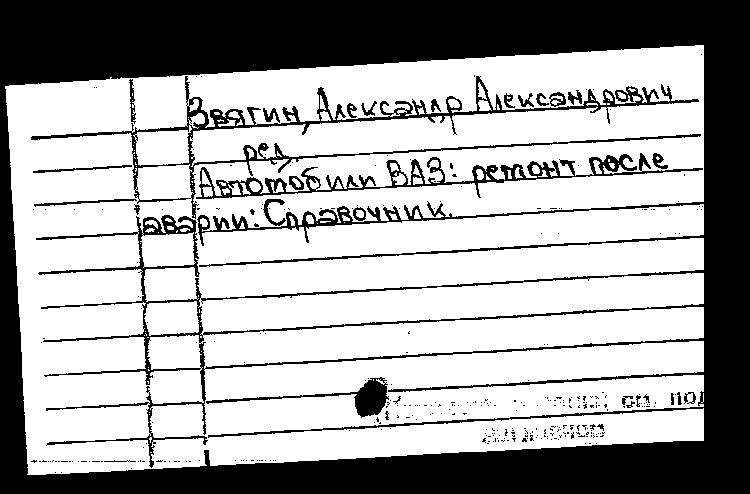 Звягин, Александр Александрович
ред.
Автомобили ВАЗ: ремонт после
аварии: Справочник.
см. под